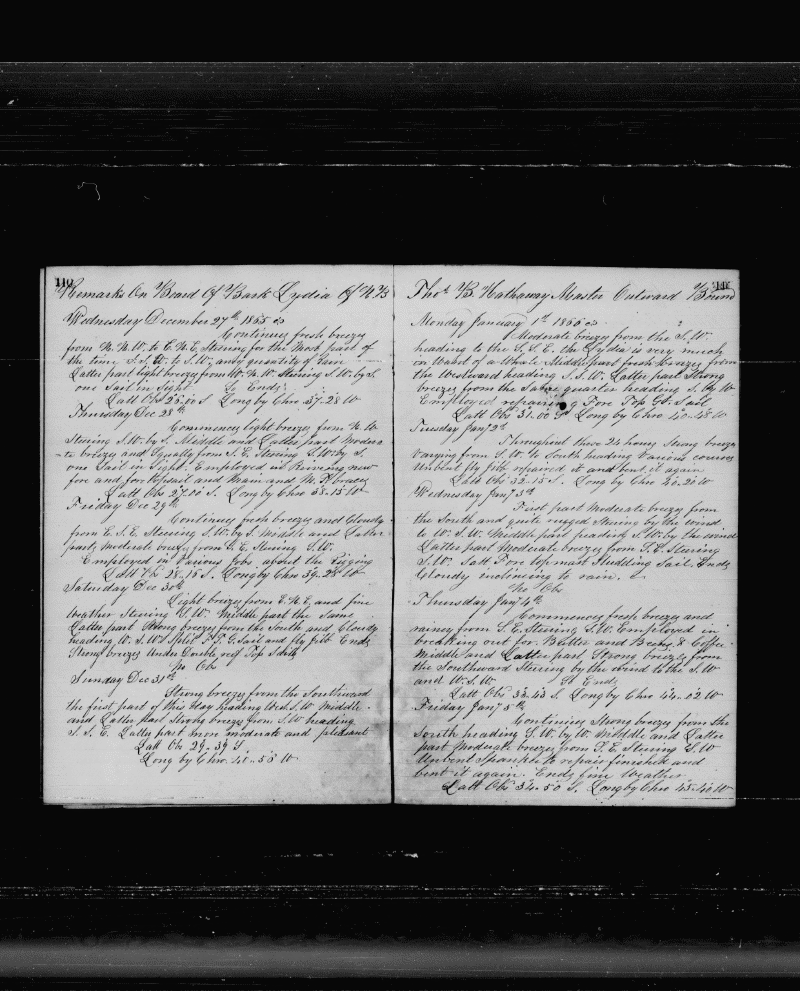 110
Remarks On Board Of Bark Lydia Of N.B
Wednesday December 27th 1865
Continues fresh breezes
from N.N.W. to E.N.E. Steering for the Most part of
the time S.S.W. to S.W. any quantity of Rain
Latter part light breezes from W.N.W. Steering S.W. by S.
one Sail in Sight So Ends
Latt Obs 26.00 S Long by Chro 37-28 W
Thursday Dec 28th
Commences light breezes from N.W
Steering S.W. by S. Middle and Latter part Modera
-te breezes and Squally from S.E. Steering S.W. by S.
one Sail in Sight. Employed in Reiving new
fore and for topsail and Main and M.T. braces
Latt Obs 27.00 S. Long by Chro 38-15 W
Friday Dec 29th
Continues fresh breezes and Cloudy
from E.S.E. Steering S.W. by S. Middle and Latter
part Moderate breezes from S.E. Steering S.W.
Employed in Various Jobs about the Rigging
Latt Obs 28-15 S. Long by Chro 39-28 W
Saturday Dec 30th
Light breezes from E.N.E. and fine
Weather Steering S.W. Middle part the Same
Latter part Strong breezes from the South and Cloudy
heading W.S.W. Split F.T.G. Sail and fly Jibb Ends
Strong breezes Under Double reef Top Sails
No Obs
Sunday Dec 31st
Strong breezes from the Southward
the first part of this day heading W.S.W Middle
and Latter part Strong breezes from S.W heading
S.S.E. Latter part more moderate and pleasant
Latt Obs 29-39 S
Long by Chro. 40-55 W
111
Thos B. Hathaway Master Outward Bound
Monday January 1st 1866
Moderate breezes from the S.W.
heading to the S.S.E. the Lydia is very much
in Want of a Whale Middle part fresh breezes from
the Westward heading S.S.W. Latter part Strong
breezes from the Same quarter heading S. by W
Employed repairing Fore Top Gt. Sail
Latt Obs 31-00 S Long by Chro 40-48 W
Tuesday Jany 2d
Throughout these 24 hours Strong breezes
Varying from S.W. to South heading Various courses
Unbent fly Jibb repaired it and bent it again
Latt Obs 32-15 S. Long by Chro 40-20 W
Wednesday Jany 3rd
First part Moderate breezes from
the South and quite rugged Steering by the wind
to W.S.W. Middle part heading S.W. by the wind
Latter part Moderate breezes from S.E. Steering
S.W. Sett Fore topmast Studding Sail Ends
Cloudy inclineing to rain.
No Obs
Thursday Jany 4th
Commences fresh breezes and
rainey from S.E. Steering S.W. Employed in
breaking out for Butter and Beans & Coffee
Middle and Latter part Strong breezes from
the Southward Steering by the wind to the S.W
and W.S.W. So Ends
Latt Obs 33-43 S. Long by Chro 44-02 W
Friday Jany 5th
Continues Strong breezes from the
South heading S.W. by W. Middle and Latter
part Moderate breezes from S.E. Steering S.W
Unbent Spanker to repair finished and
bent it again. Ends fine Weather
Latt Obs 34-50 S. Long by Chro 45-40 W